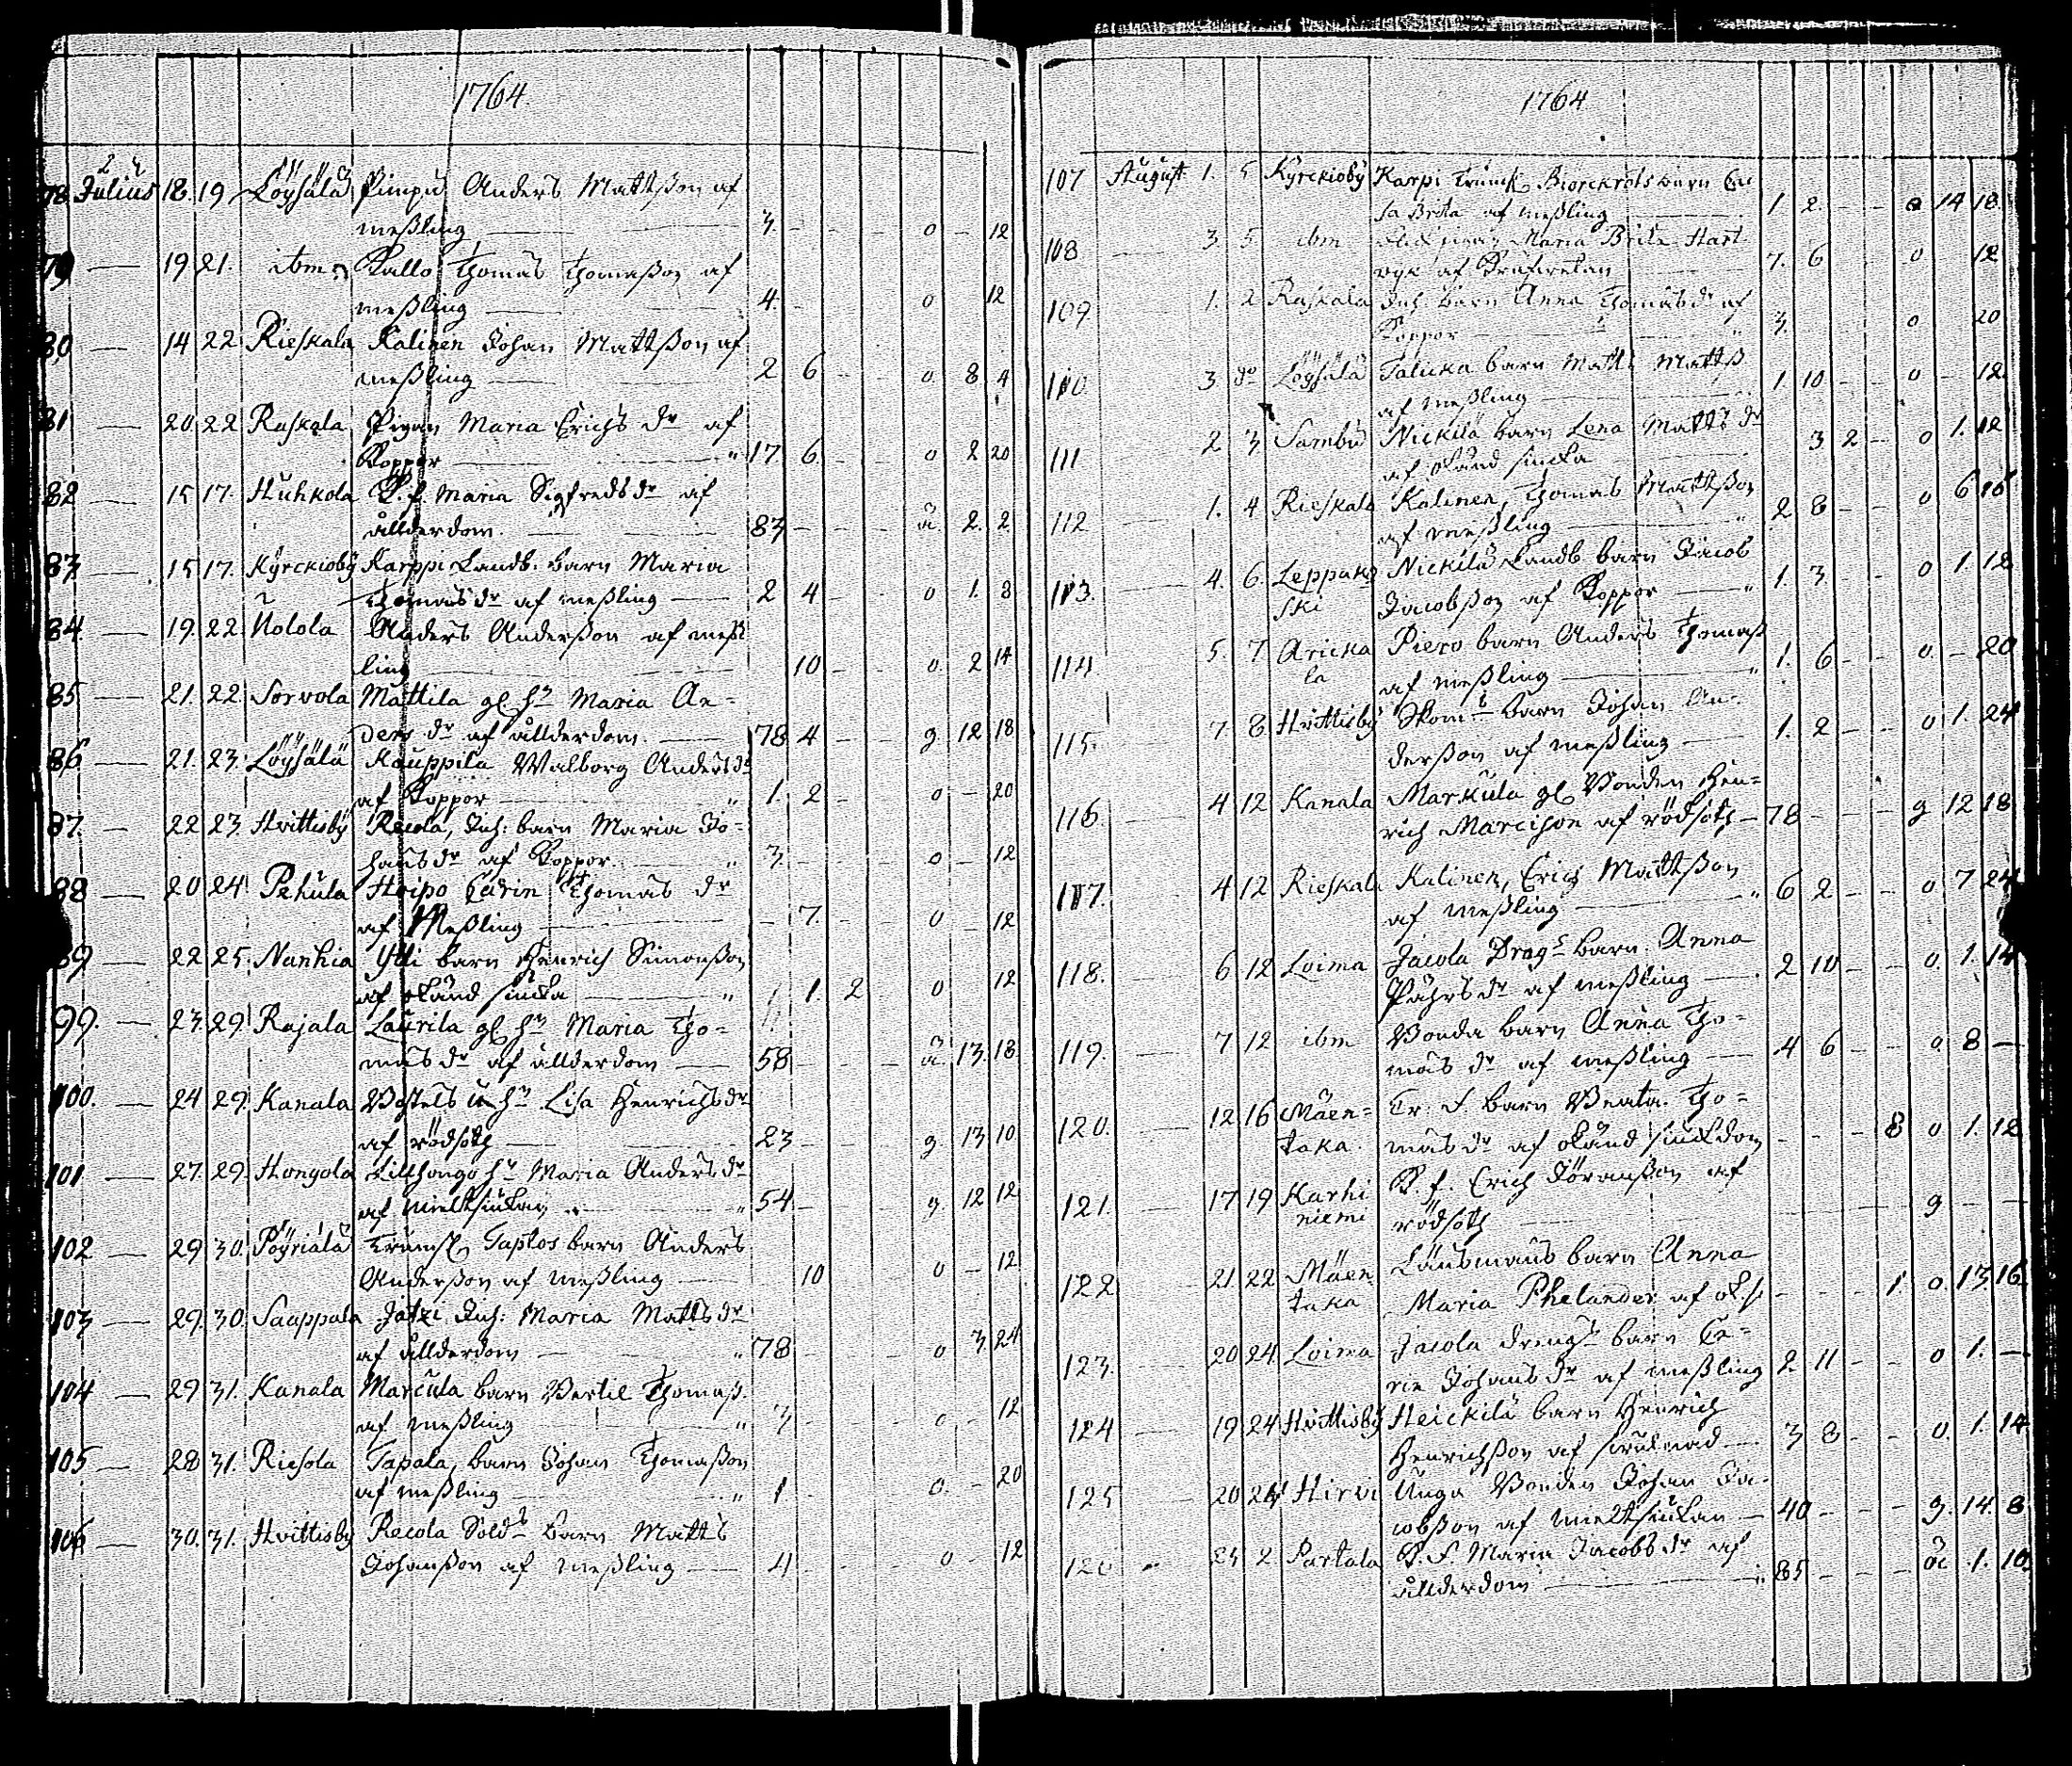 1764
78 Julius 18. 19 Löysälä Pimpu Anders Mattsson af
meßling 3. - - - o - 12
79 — 19 21. ibm Kallo Thomas Thomaßon af
meßling 4. - - - o 12
80 — 14 22 Rieskala Kalinen Johan Mattßon af
meßling 2 6 - - o. 8 4
81 — 20 22 Raskala Pigan Maria Erichs dr af
Koppor 17 6 - - o 2 20
82 — 15 17. Huhkola K. f. Maria Sigfreds dr af
ållderdom. 83 - - - ä. 2. 2
83 — 15 17. Kyrckioby Karppi Landb. barn Maria
Thomas dr af meßling — 2 4 - - o 1. 8
84 — 19. 22 Nolola Anders Anderßon af meß
ling 10 - - o. 2 14
85 — 21. 22. Sorvola Mattila gl. hn Maria An=
ders dr af ållderdom. — 78 4 - - g 12 18
86 — 21. 23. Löysälä Kauppila Walborg Anders dr
af Koppor 1. 2 - o - 20
87. — 22 23. Hvittisby Recola, Inh: barn Maria Jo=
hans dr af Koppor 3 - - - o - 12
88 — 20 24 Pehula Hoipo Carin Thomas dr
af Meßling - 7. - - o - 12
89 — 22 25. Nanhia Ylli barn Henrich Simonßon
af okänd siucka 1. 2 o 12
99. — 23. 29 Rajala Laurila gl. hn Maria Tho=
mas dr af ållderdom — 58 - - - ä. 13. 18
100. — 24 29. Kanala Bostels u hn Lisa Henrichs dr
af rödsoth 23 - - - g. 13 10
101 — 27. 29. Hongola Lillhongo hu Maria Anders dr
af mieltsiukan 54 - - - g. 12 12
102 — 29. 30. Pöyriälä Trumsl. Taptos barn Anders
Anderßon af meßling — 10 o - 12
103 — 29. 30. Sauppala Jatzi Inh: Maria Matts dr
af ållderdom — 78 - - - o 3. 24
104 — 29 31. Kanala Marcula barn Bertil Thomaß.
af meßling — 3 - - - o - 12
105 — 28 31. Riesola Tapala, barn Johan Thomaßon
af meßling 1 - - - o. - 20
106 — 30. 31. Hvittisby Recola Solds barn Matts
Johanßon af meßling — 4 - - - o - 12
1764
107 August 1. 5 Kyrckioby Karpi Trumsl. Biorckrots barn
sa Brita af meßling 1. 2. - - o 14 18.
108 3. 5 ibm Maria Brita Hart
af 7. 6 o 12
109. 1. 2 Raskala Inh barn Anna Thomas dr af
Koppor 3. o 20
110. 3 do Löysälä Talicka barn Matts Mattß
af meßling 1. 10 - - o - 12.
111 2 3 Sambu Nickilä barn Lena Matts dr
af okänd siucka 3 2 - o 1. 12
112 1. 4 Rieskala Kalinen, Thomas Mattßon
af meßling 2 8 - - o 6 16
113. — 4. 6. Leppako Nickilä Landb. barn Jacob
ski Jacobßon af Koppor — 1. 3 - - o 1. 12
114. 5. 7 Aricka Piero barn Anders Thomaß
la af meßling 1. 6 - - o - 20
115. 7. 8 Hvittisby Skom: barn Johan An=
derßon af meßling — 1. 2 - - o 1. 24
116 4 12 Kanala Markula gl. Bonden Hen=
rich Marcison af rödsoth - 78 - - - g 12 18
117. 4 12 Rieskala Kalinen, Erich Mattßon
af meßling — 6 2 - - o 7 24
118. 6 12 Loima Jacola Dragn barn Anna
Påhrs dr af meßling — 2 10 - - o. 1. 14
119. — 7 12 ibm Bonda barn Anna Tho=
mas dr af meßling — 4 6 - - o. 8 —
120. — 12 16 Mäen= Tr. S. barn Beata Tho=
taka. mas dr af okänd siuckdom - - - 8 o 1. 12
121. — 17 19 Karhi K. f. Erich Jöranßon af
niemi rödsoth g - -
122 21 22 Mäen Länsmans barn Anna
taka Maria Phelander af ok. s. - - - 1 o. 13. 16
123. — 20 24. Loima Jacola drengs barn Ca=
rin Johans dr af meßling 2 11 - - o 1. —
124 — 19 24 Hvittisby Heickilä barn Henrich
Henrichßon af — 3 8 - - o. 1. 14
125 20 24 Hirvi Unga Bonden Johan Ja=
cobßon af mieltsiukan — 40 - - - g. 14. 8
126 2 Partala K. f. Maria Jacobs dr af
ållderdom — 85 - - - 1. 10.